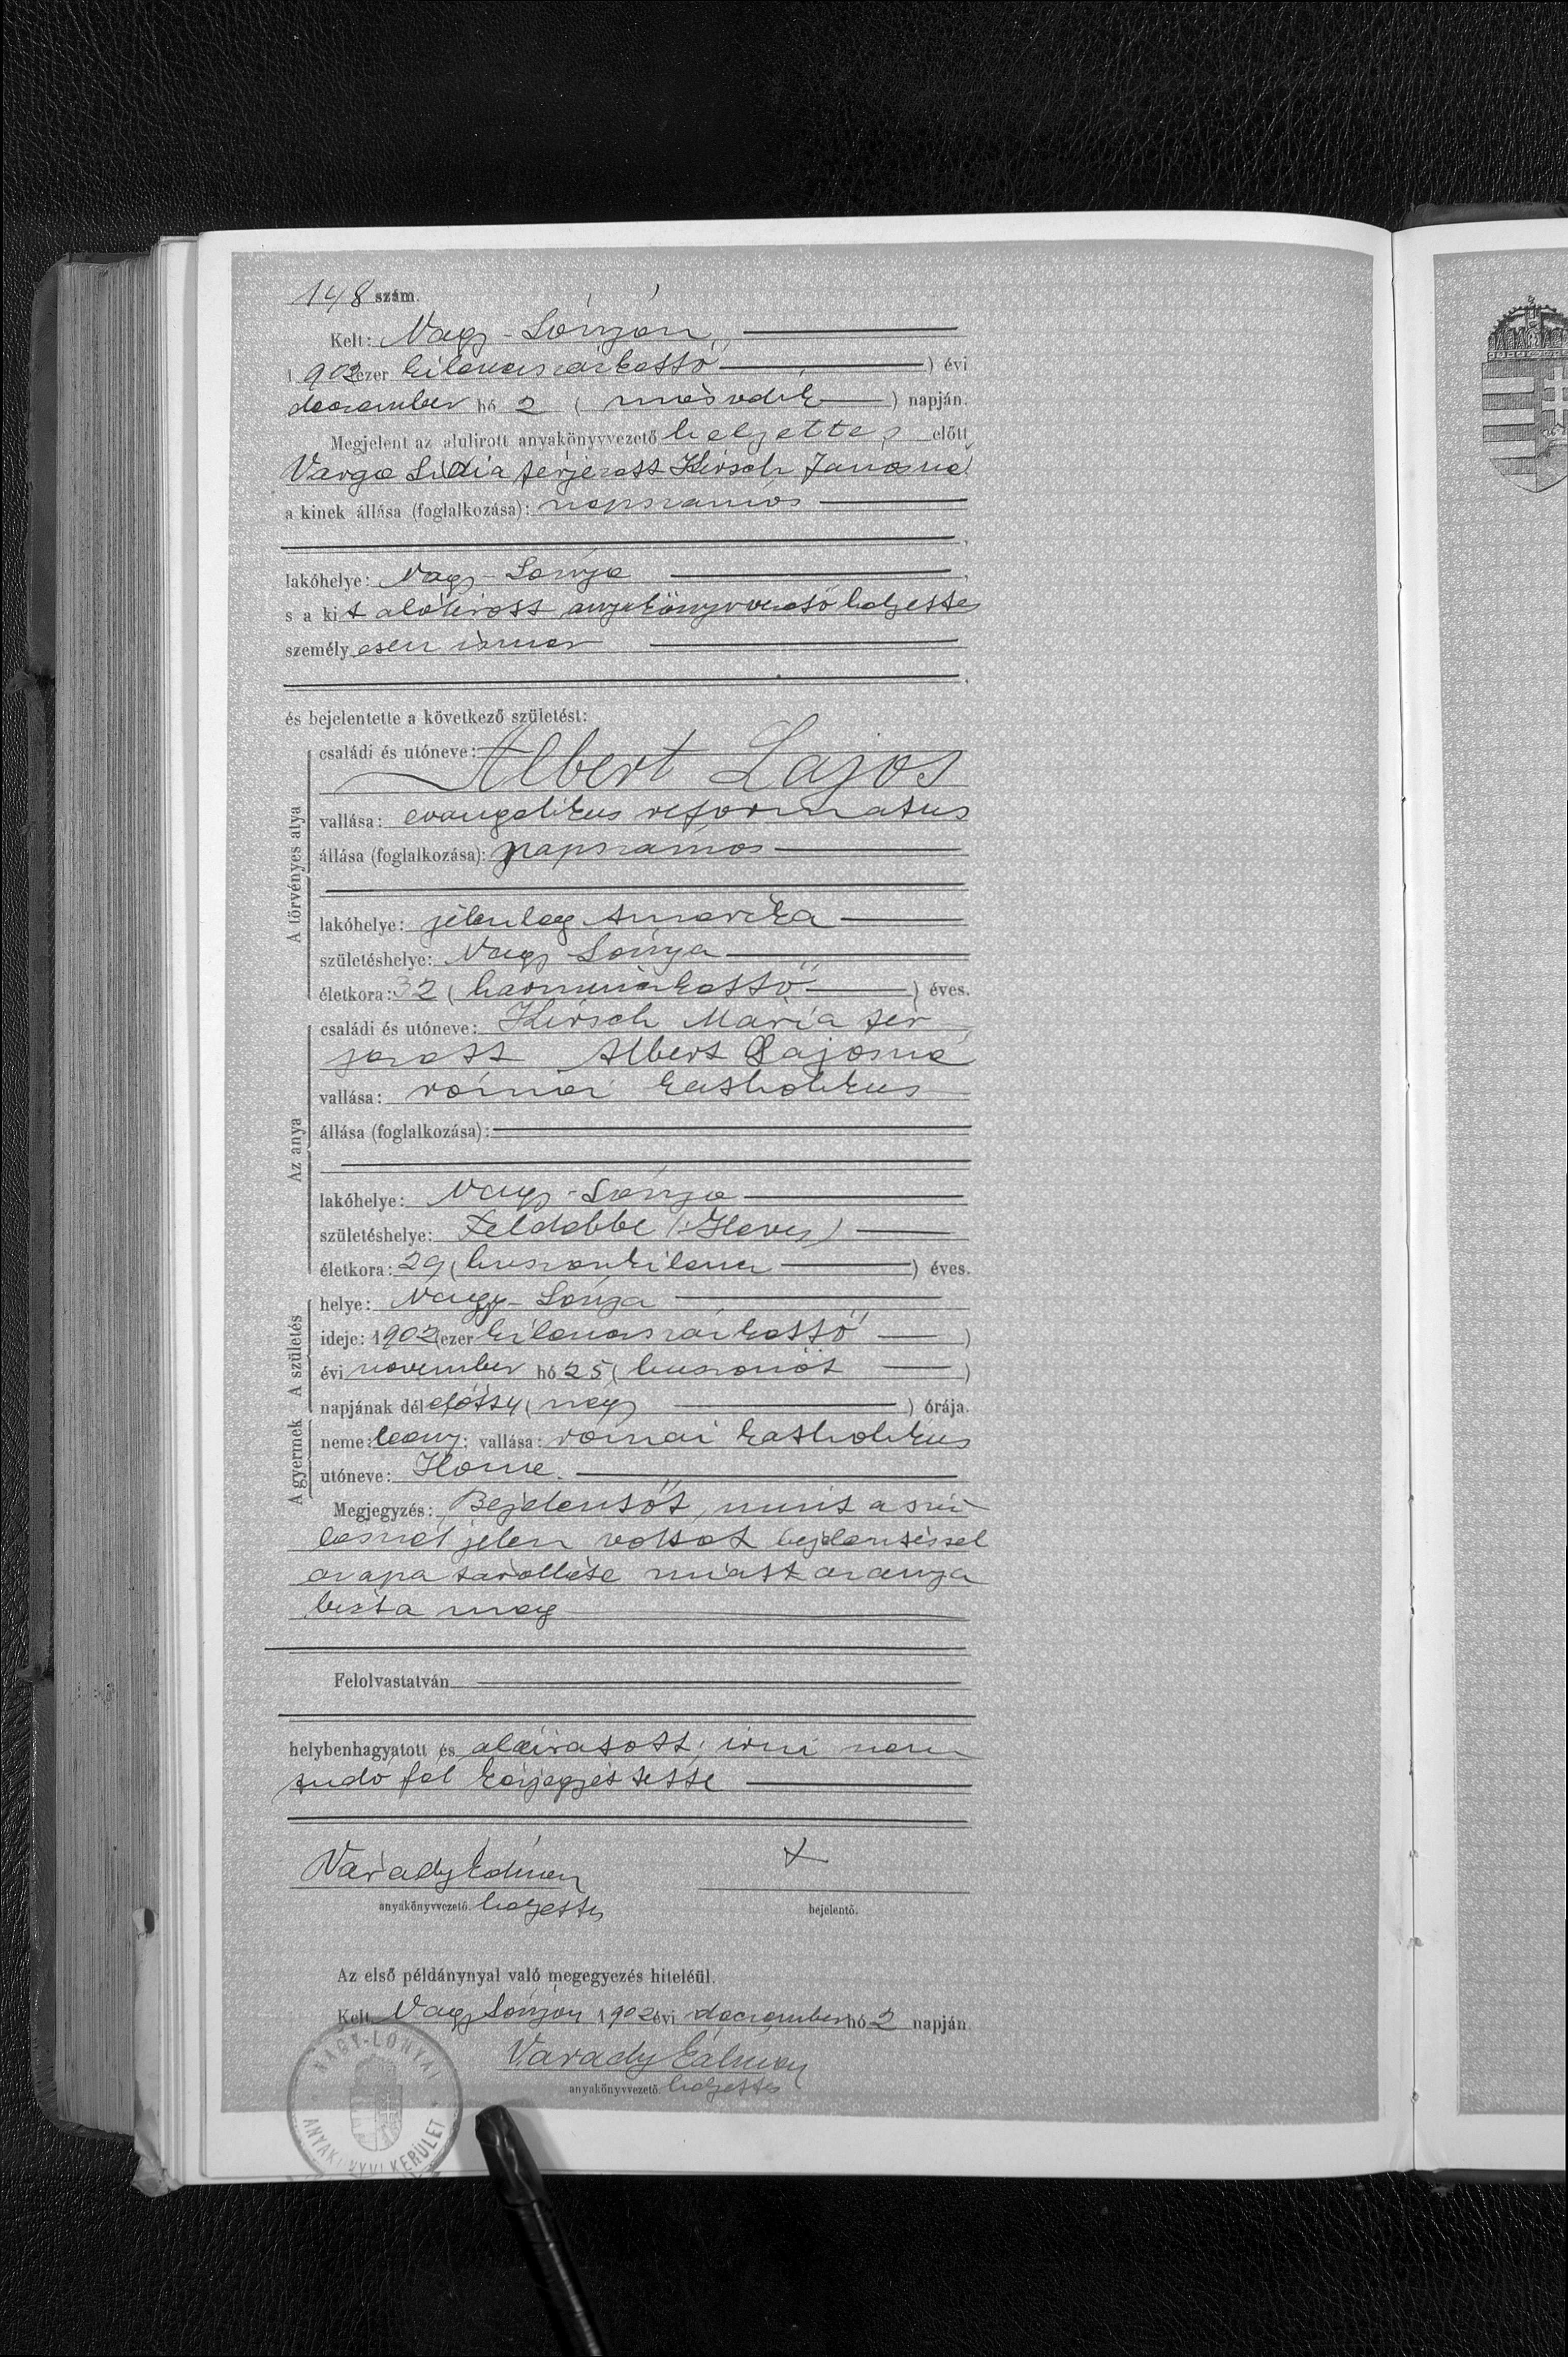 148 szám.
Kelt: Nagy-Lónyán,
1902 ezer kilenczszázkettő ) évi
deczember hó 2 ( második ) napján.
Megjelent az alulirott anyakönyvvezető helyettes előtt
Varga Lidia férjezett Kirsch Janosné
a kinek állása (foglalkozása): napszámos
lakóhelye: Nagy-Lónya
s a kit alólirott anyakönyvvezető helyettes
személyesen ismer
és bejelentette a következő születést:
A törvényes atya
családi és utóneve:
Albert Lajos
vallása: evangelikus reformatus
állása (foglalkozása): napszámos
lakóhelye: jelenleg Amerika
születéshelye: Nagy-Lónya
életkora: 32 ( harminckettő ) éves.
Az anya
családi és utóneve: Kirsch Mária fér
jezett Albert Lajosné
vallása: római katholikus
állása (foglalkozása):
lakóhelye: Nagy-Lónya
születéshelye: Feldebbe (Heves)
életkora: 29 ( huszonkilencz ) éves.
A születés
helye: Nagy-Lónya
ideje: 1902 (ezer kilenczszázkettő )
évi november hó 25 ( huszonöt )
napjának délelőtt 4 ( négy ) órája.
A gyermek
neme: leány; vallása: római katholikus
utóneve: Ilona.
Megjegyzés: Bejelentőt, mint a szü
lésnél jelen voltat bejelentéssel
az apa távolléte miatt az anya
bizta meg
Felolvastatván
helybenhagyatott és aláiratott; irni nem
tudó fél kézjegyét tette
Várady Kálmán
anyakönyvvezető. helyettes
+
bejelentő.
Az első példánynyal való megegyezés hiteléül.
Kelt Nagy Lónyán 1902 évi deczember hó 2 napján
Várady Kálmán
anyakönyvvezető. helyettes
NAGY-LÓNYAI
ANYAKÖNYVI KERÜLET